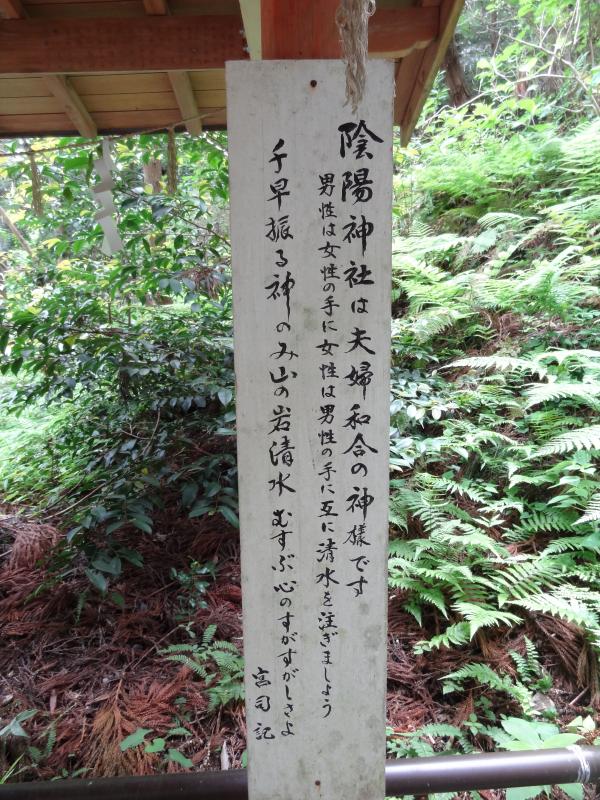 陰陽神社は夫婦和合の神様です
男性は女性の手に女性は男性の手に互に清水を注ぎましょう
千早振る神のみ山の岩清水 むすぶ心のすがすがしさよ
宮司記